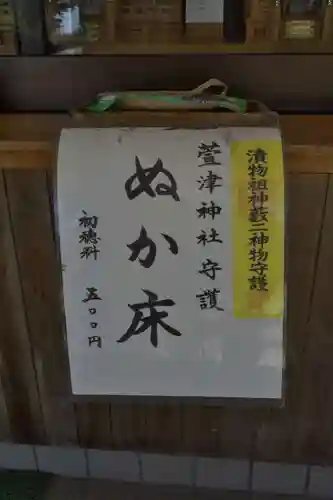 漬物祖神藪二神物守護
萱津神社守護
ぬか床
初穂料
五〇〇円